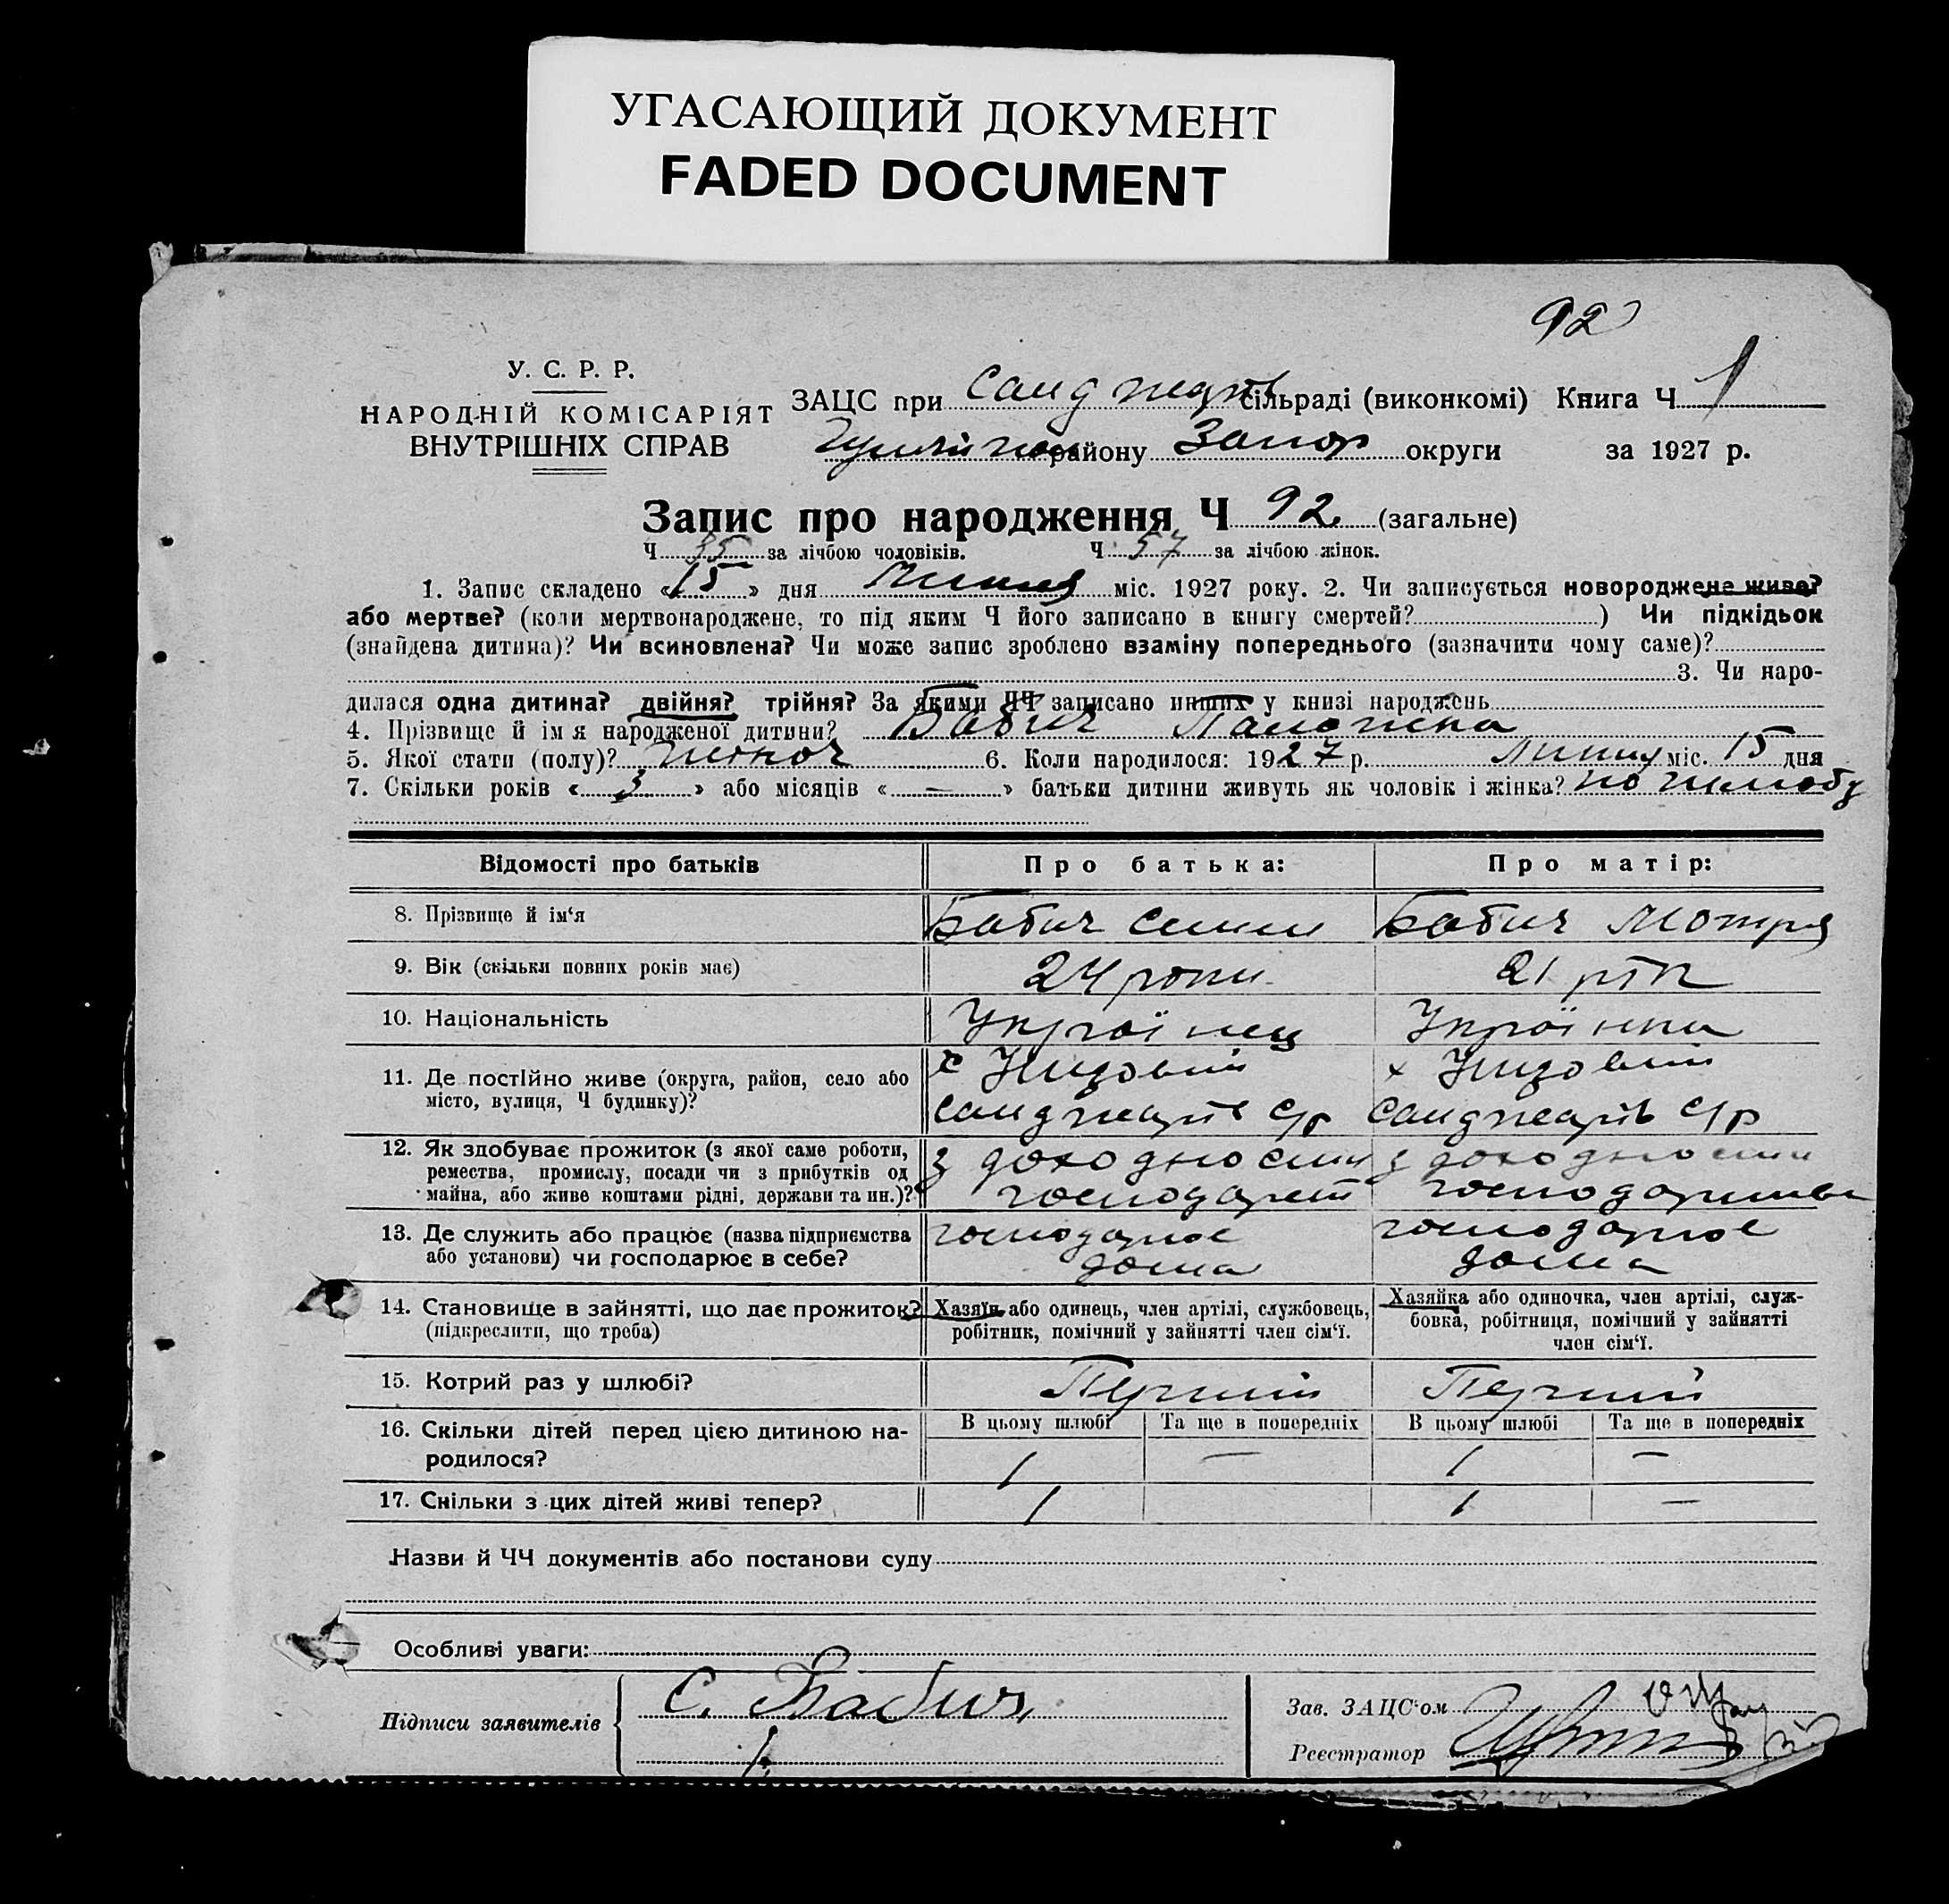 УГАСАЮЩИЙ ДОКУМЕНТ
FADED DOCUMENT
92
У. С. Р. Р.
НАРОДНІЙ КОМІСАРІЯТ
ВНУТРІШНІХ СПРАВ
ЗАЦС при Санджар сільраді (виконкомі) Книга Ч 1
району Запор округи за 1927 р.
Запис про народження Ч 92 (загальне)
Ч 35 за лічбою чоловіків. Ч 57 за лічбою жінок.
1. Запис складено «15» дня Липня міс. 1927 року. 2. Чи записується новороджене живе?
або мертве? (коли мертвонароджене, то під яким Ч його записано в книгу смертей? ) Чи підкідьок
(знайдена дитина)? Чи всиновлена? Чи може запис зроблено взаміну попереднього (зазначити чому саме)?
3. Чи наро-
дилася одна дитина? двійня? трійня? За якими ЧЧ записано инших у книзі народжень
4. Прізвище й ім я народженої дитини? Бабич
5. Якої стати (полу)? жіноч 6. Коли народилося: 1927 р. Липня міс. 15 дня
7. Скільки років « 3 » або місяців « — » батьки дитини живуть як чоловік і жінка? по шлюбу
Відомості про батьків Про батька: Про матір:
8. Прізвище й ім‘я Бабич Семен Бабич Мотря
9. Вік (скільки повних років має) 24 роки 21 рік
10. Національність Українец Українка
11. Де постійно живе (округа, район, село або
місто, вулиця, Ч будинку)?
х х
Санджарів с/р Санджарів с/р
12. Як здобуває прожиток (з якої саме роботи,
ремества, промислу, посади чи з прибутків од
майна, або живе коштами рідні, держави та ин.)?
з доходности з доходности
господарст господарства
13. Де служить або працює (назва підприємства
або установи) чи господарює в себе?
господарює дома
господарює дома
14. Становище в зайнятті, що дає прожиток?
(підкреслити, що треба)
Хазяїн або одинець, член артілі, службовець,
робітник, помічний у зайнятті член сім‘ї.
Хазяйка або одиночка, член артілі, служ-
бовка, робітниця, помічний у зайнятті
член сім‘ї.
15. Котрий раз у шлюбі? Перший Перший
16. Скільки дітей перед цією дитиною на-
родилося?
В цьому шлюбі Та ще в попередніх В цьому шлюбі Та ще в попередніх
1 — 1 —
17. Скільки з цих дітей живі тепер? 1 1 —
Назви й ЧЧ документів або постанови суду
Особливі уваги:
Підписи заявителів С. Бабич
Зав. ЗАЦС‘ом
Реєстратор